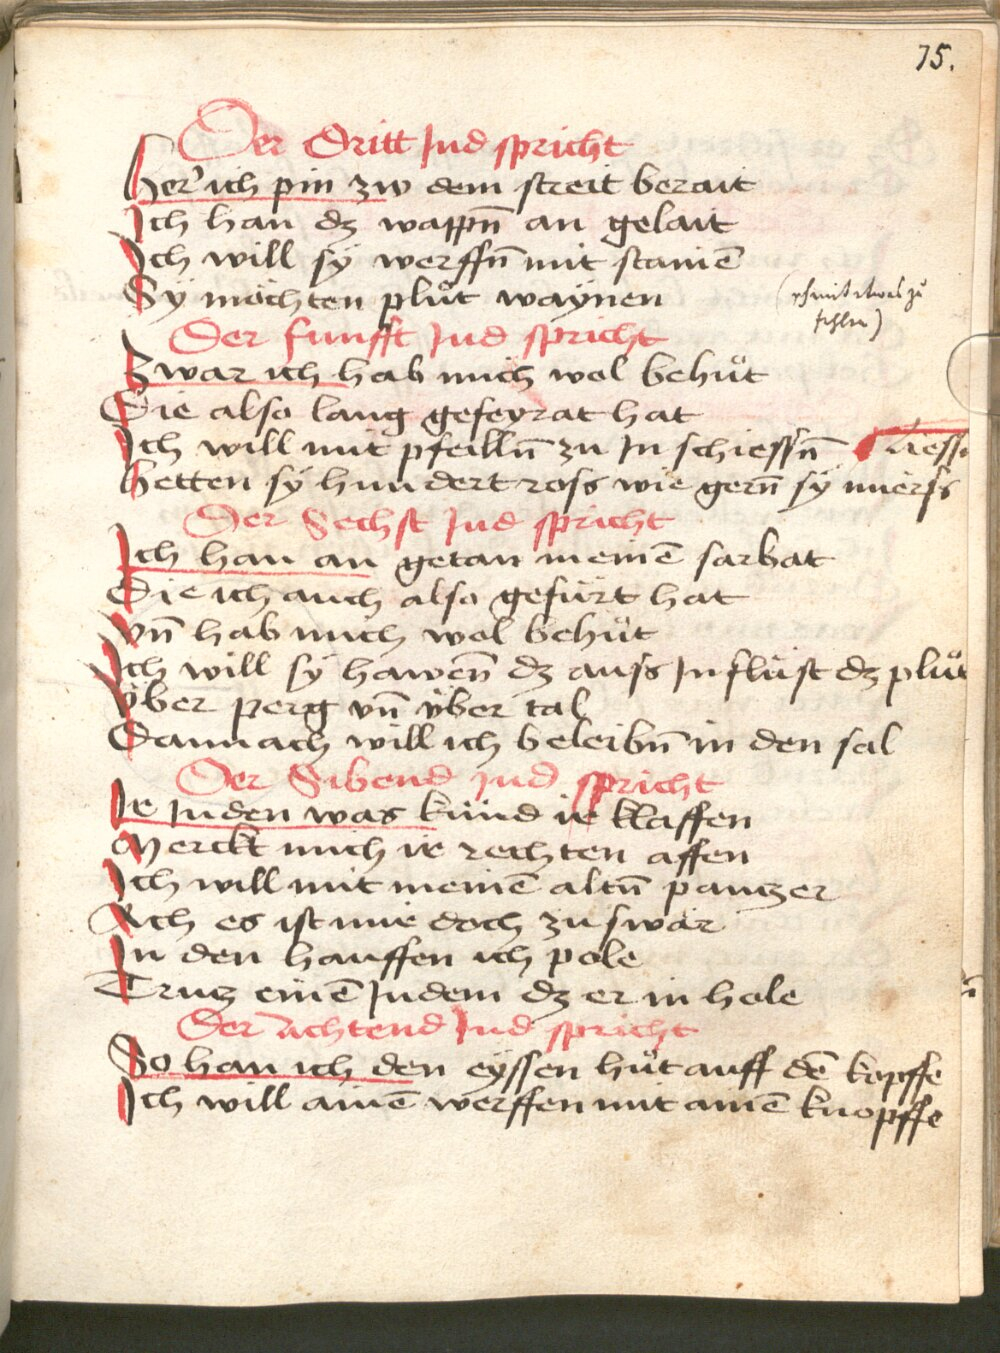 75.
Der Dritt Jud spricht
Her' ich pin zw dem streit berait
Ich han dz wappn̄ an gelait
Ich will sÿ werffn̄ mit stainē
Sÿ möchten plůt waÿnen
(scheint etwas zu
fehlen)
Der funfft Jud spricht
Zwar ich hab mich wol behůt
Die also lang gefeyrat hat
Ich will mit pfeilln̄ zu In schiessn̄
hetten sÿ hundert ross wie gern̄ sÿ
Der Sechst Jud spricht
Ich han an getan meinē sarbat
Die ich auch also gefürt hat
vn̄ hab mich wol behůt
Ich will sÿ hawen̄ dz auss In flüst dz plůt
v̈ber perg vn̄ v̈ber tal
Darnach will ich beleibn̄ in den sal
Der Sibend Jud spricht
Ir Juden was künd ir klaffen
Merckt mich ir rechten affen
Ich will mit meinē altn̄ pantzer
Ach es ist mir doch zu swär
In den hauffen ich pole
Trutz einē Judem dz er in hole
Der Achtend Jud spricht
So han ich den eÿssen hůt auff dē kopffe
Ich will ainē werffen mit ainē knopffe